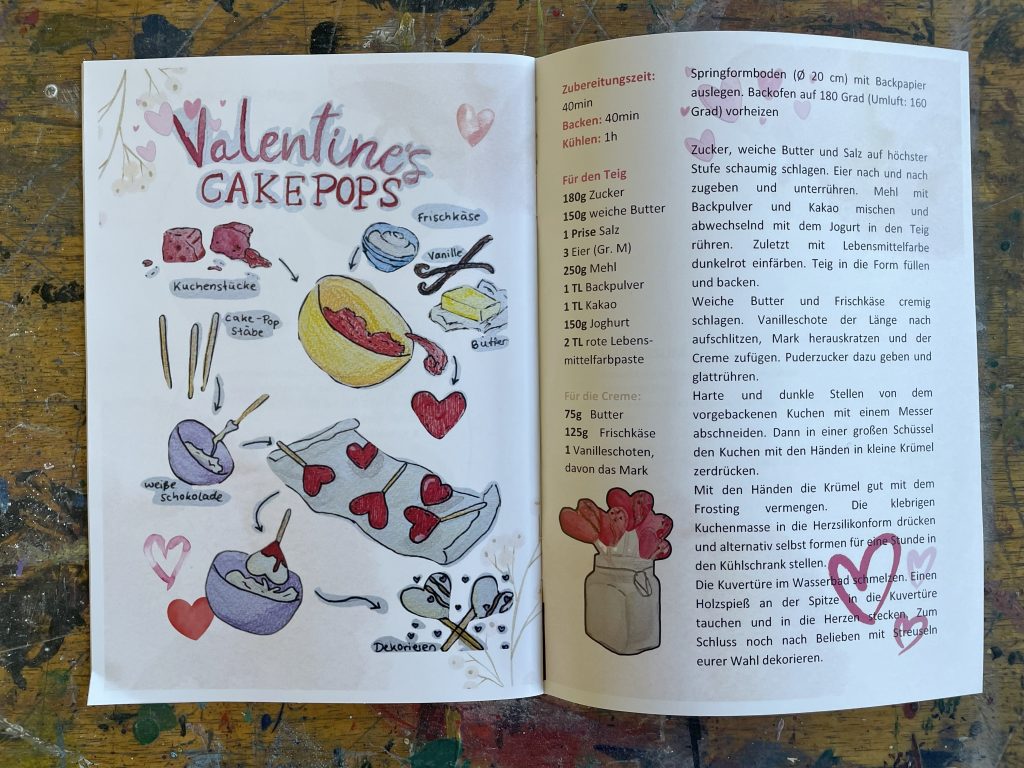 Valentine's
CAKEPOPS
Frischkäse
Vanille
Kuchenstücke
Butter
Cake-Pop
Stäbe
weiße
Schokolade
Dekorieren
Zubereitungszeit:
40min
Backen: 40min
Kühlen: 1h
Für den Teig
180g Zucker
150g weiche Butter
1 Prise Salz
3 Eier (Gr. M)
250g Mehl
1 TL Backpulver
1 TL Kakao
150g Joghurt
2 TL rote Lebens-
mittelfarbpaste
Für die Creme:
75g Butter
125g Frischkäse
1 Vanilleschoten,
davon das Mark
Springformboden (Ø 20 cm) mit Backpapier
auslegen. Backofen auf 180 Grad (Umluft: 160
Grad) vorheizen
Zucker, weiche Butter und Salz auf höchster
Stufe schaumig schlagen. Eier nach und nach
zugeben und unterrühren. Mehl mit
Backpulver und Kakao mischen und
abwechselnd mit dem Jogurt in den Teig
rühren. Zuletzt mit Lebensmittelfarbe
dunkelrot einfärben. Teig in die Form füllen
und backen.
Weiche Butter und Frischkäse cremig
schlagen. Vanilleschote der Länge nach
aufschlitzen, Mark herauskratzen und der
Creme zufügen. Puderzucker dazu geben und
glattrühren.
Harte und dunkle Stellen von dem
vorgebackenen Kuchen mit einem Messer
abschneiden. Dann in einer großen Schüssel
den Kuchen mit den Händen in kleine Krümel
zerdrücken.
Mit den Händen die Krümel gut mit dem
Frosting vermengen. Die klebrigen
Kuchenmasse in die Herzsilikonform drücken
und alternativ selbst formen für eine Stunde in
den Kühlschrank stellen.
Die Kuvertüre im Wasserbad schmelzen. Einen
Holzspieß an der Spitze in die Kuvertüre
tauchen und in die Herzen stecken. Zum
Schluss noch nach Belieben mit Streuseln
eurer Wahl dekorieren.